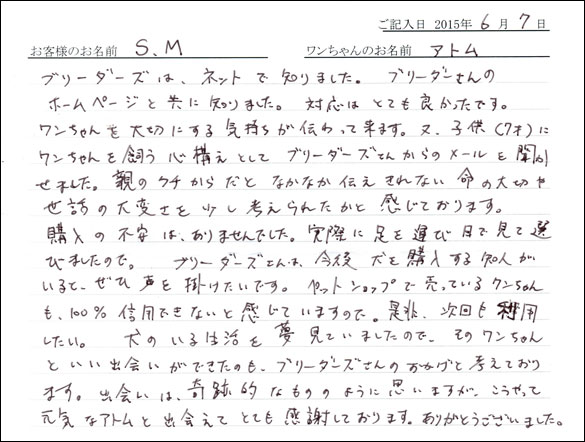 ご記入日 2015年 6月 7日
お客様のお名前 S.M ワンちゃんのお名前 アトム
ブリーダーズは、ネットで知りました。 ブリーダーさんの
ホームページと共に知りました。 対応はとても良かったです。
ワンちゃんを大切にする気持ちが伝わって来ます。又、子供(7才)に
ワンちゃんを飼う心構えとしてブリーダーズさんからのメールを聞か
せました。親のクチからだとなかなか伝えきれない命の大切や
世話の大変さを少し考えられたかと感じております。
購入の不安は、ありませんでした。実際に足を運び目で見て選
びましたので。 ブリーダーズさんは、今後犬を購入する知人が
いると、ぜひ声を掛けたいです。ペットショップで売っているワンちゃん
も、100%信用できないと感じていますので。是非、次回も利用
したい。 犬のいる生活を夢見ていましたので、そのワンちゃん
といい出会いができたのも、ブリーダーズさんのおかげと考えており
ます。出会いは、奇跡的なもののように思いますが、こうやって
元気なアトムと出会えてとても感謝しております。ありがとうございました。